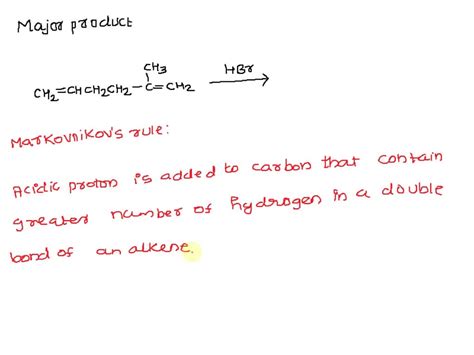 Major product
CH3
CH2=CHCH2CH2-C=CH2 HBr
Markovnikov's rule:
Acidic proton is added to carbon that contain
greater number of hydrogen in a double
bond of an alkene.